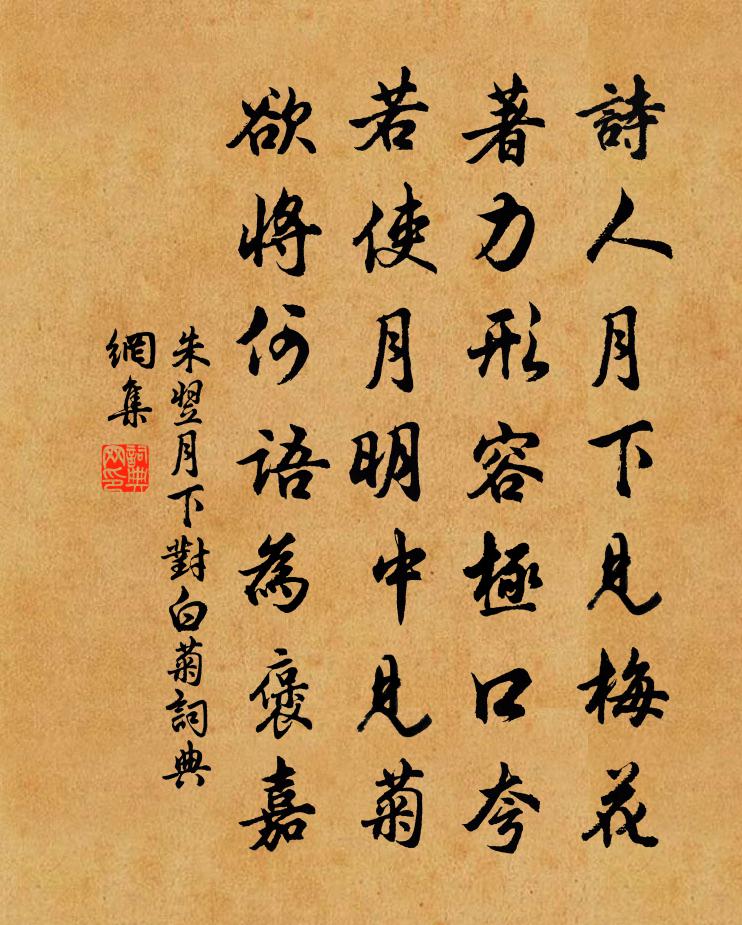 詩人月下見梅花
著力形容極口夸
若使月明中見菊
欲將何語為褒嘉
朱翌月下對白菊詞典
網集
詞典
网印